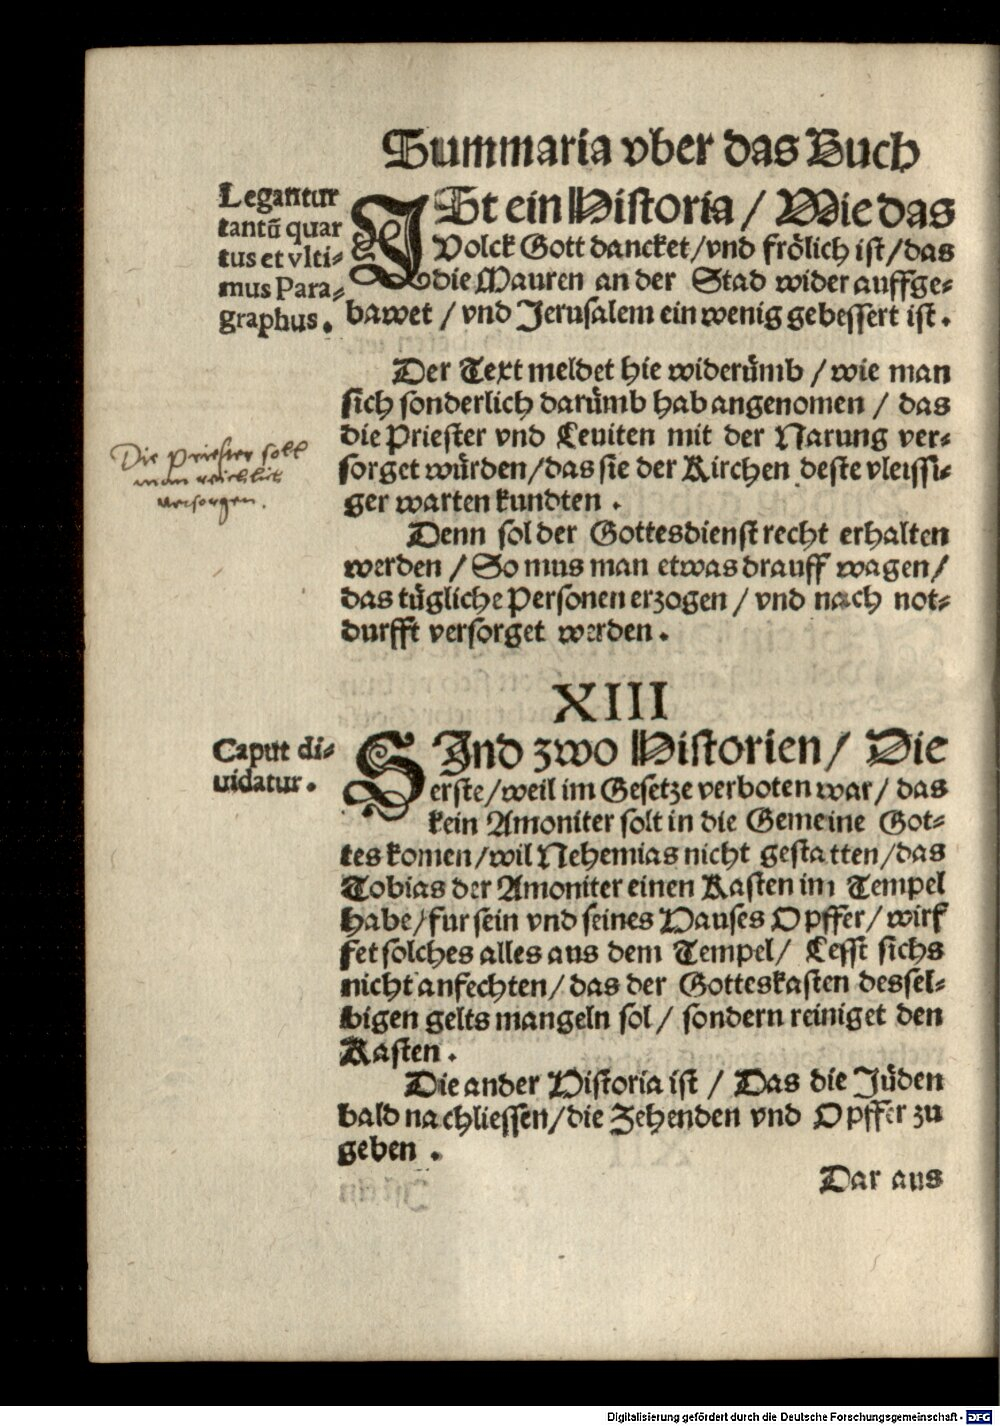 Summaria vber das Buch
Legantur
tantū quar
tus et vlti-
mus Para-
graphus.
ISt ein Historia / Wie das
Volck Gott dancket / vnd frölich ist / das
die Mauren an der Stad wider auffge-
bawet / vnd Jerusalem ein wenig gebessert ist.
Der Text meldet hie widerümb / wie man
sich sonderlich darümb hab angenomen / das
die Priester vnd Leuiten mit der Narung ver-
sorget würden / das sie der Kirchen deste vleissi-
ger warten kundten.
Die Priester solt
man reichlich
versorgen.
Denn sol der Gottesdienst recht erhalten
werden / So mus man etwas drauff wagen /
das tügliche Personen erzogen / vnd nach not-
durfft versorget werden.
XIII
Caput di-
uidatur.
SInd zwo Historien / Die
erste / weil im Gesetze verboten war / das
kein Amoniter solt in die Gemeine Got-
tes komen / wil Nehemias nicht gestatten / das
Tobias der Amoniter einen Kasten im Tempel
habe / fur sein vnd seines Hauses Opffer / wirf
fet solches alles aus dem Tempel / Lesst sichs
nicht anfechten / das der Gotteskasten dessel-
bigen gelts mangeln sol / sondern reiniget den
Kasten.
Die ander Historia ist / Das die Jüden
bald nachliessen / die Zehenden vnd Opffer zu
geben.
Dar aus
Digitalisierung gefördert durch die Deutsche Forschungsgemeinschaft - DFG